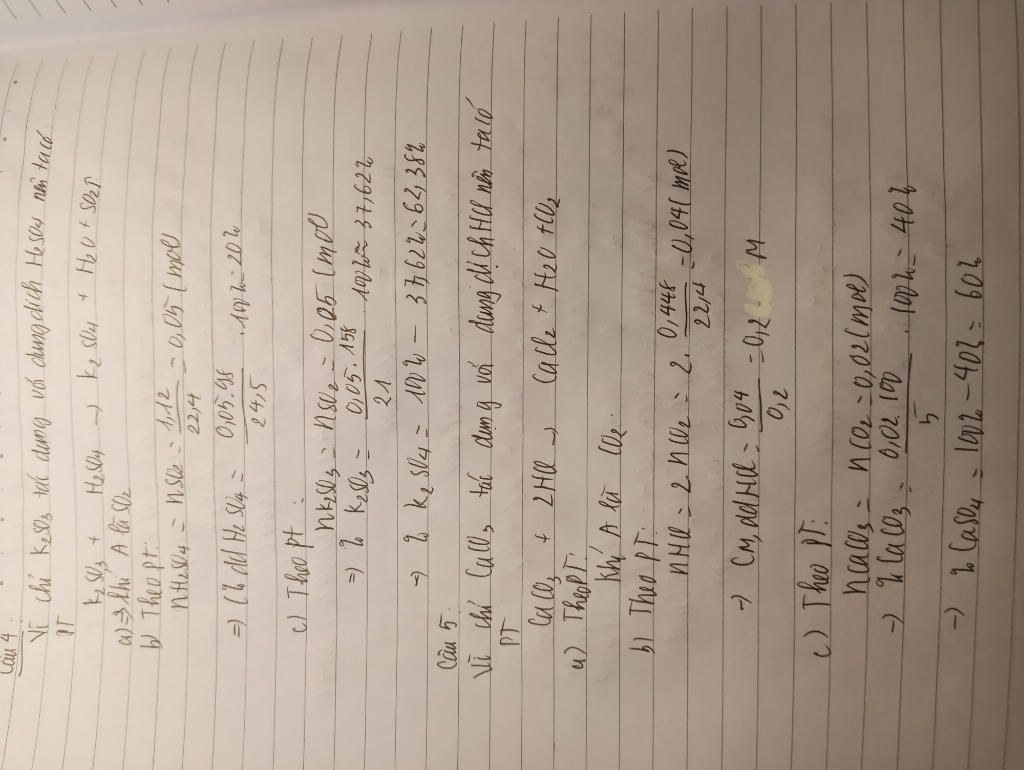 Câu 4:
Vì chỉ K2SO3 tác dụng với dung dịch H2SO4 nên ta có
PT
K2SO3 + H2SO4 → K2SO4 + H2O + SO2↑
a) => khí A là SO2
b) Theo PT:
nH2SO4 = nSO2 = 1,12/22,4 = 0,05 (mol)
=) C% dd H2SO4 = 0,05.98/24,5 . 100% = 20%
c) Theo pt:
nK2SO3 = nSO2 = 0,05 (mol)
=) % K2SO3 = 0,05.158/21 . 100% ≈ 37,62%
→ % K2SO4 = 100% - 37,62% = 62,38%
Câu 5:
Vì chỉ CaCO3 tác dụng với dung dịch HCl nên ta có
PT
CaCO3 + 2HCl → CaCl2 + H2O + CO2
a) Theo PT:
Khí A là CO2
b) Theo PT:
nHCl = 2 nCO2 = 2. 0,448/22,4 = 0,04 (mol)
→ CM, ddHCl = 0,04/0,2 = 0,2 M
c) Theo PT:
nCaCO3 = nCO2 = 0,02 (mol)
→ % CaCO3 = 0,02.100/5 . 100% = 40%
→ % CaSO4 = 100% - 40% = 60%